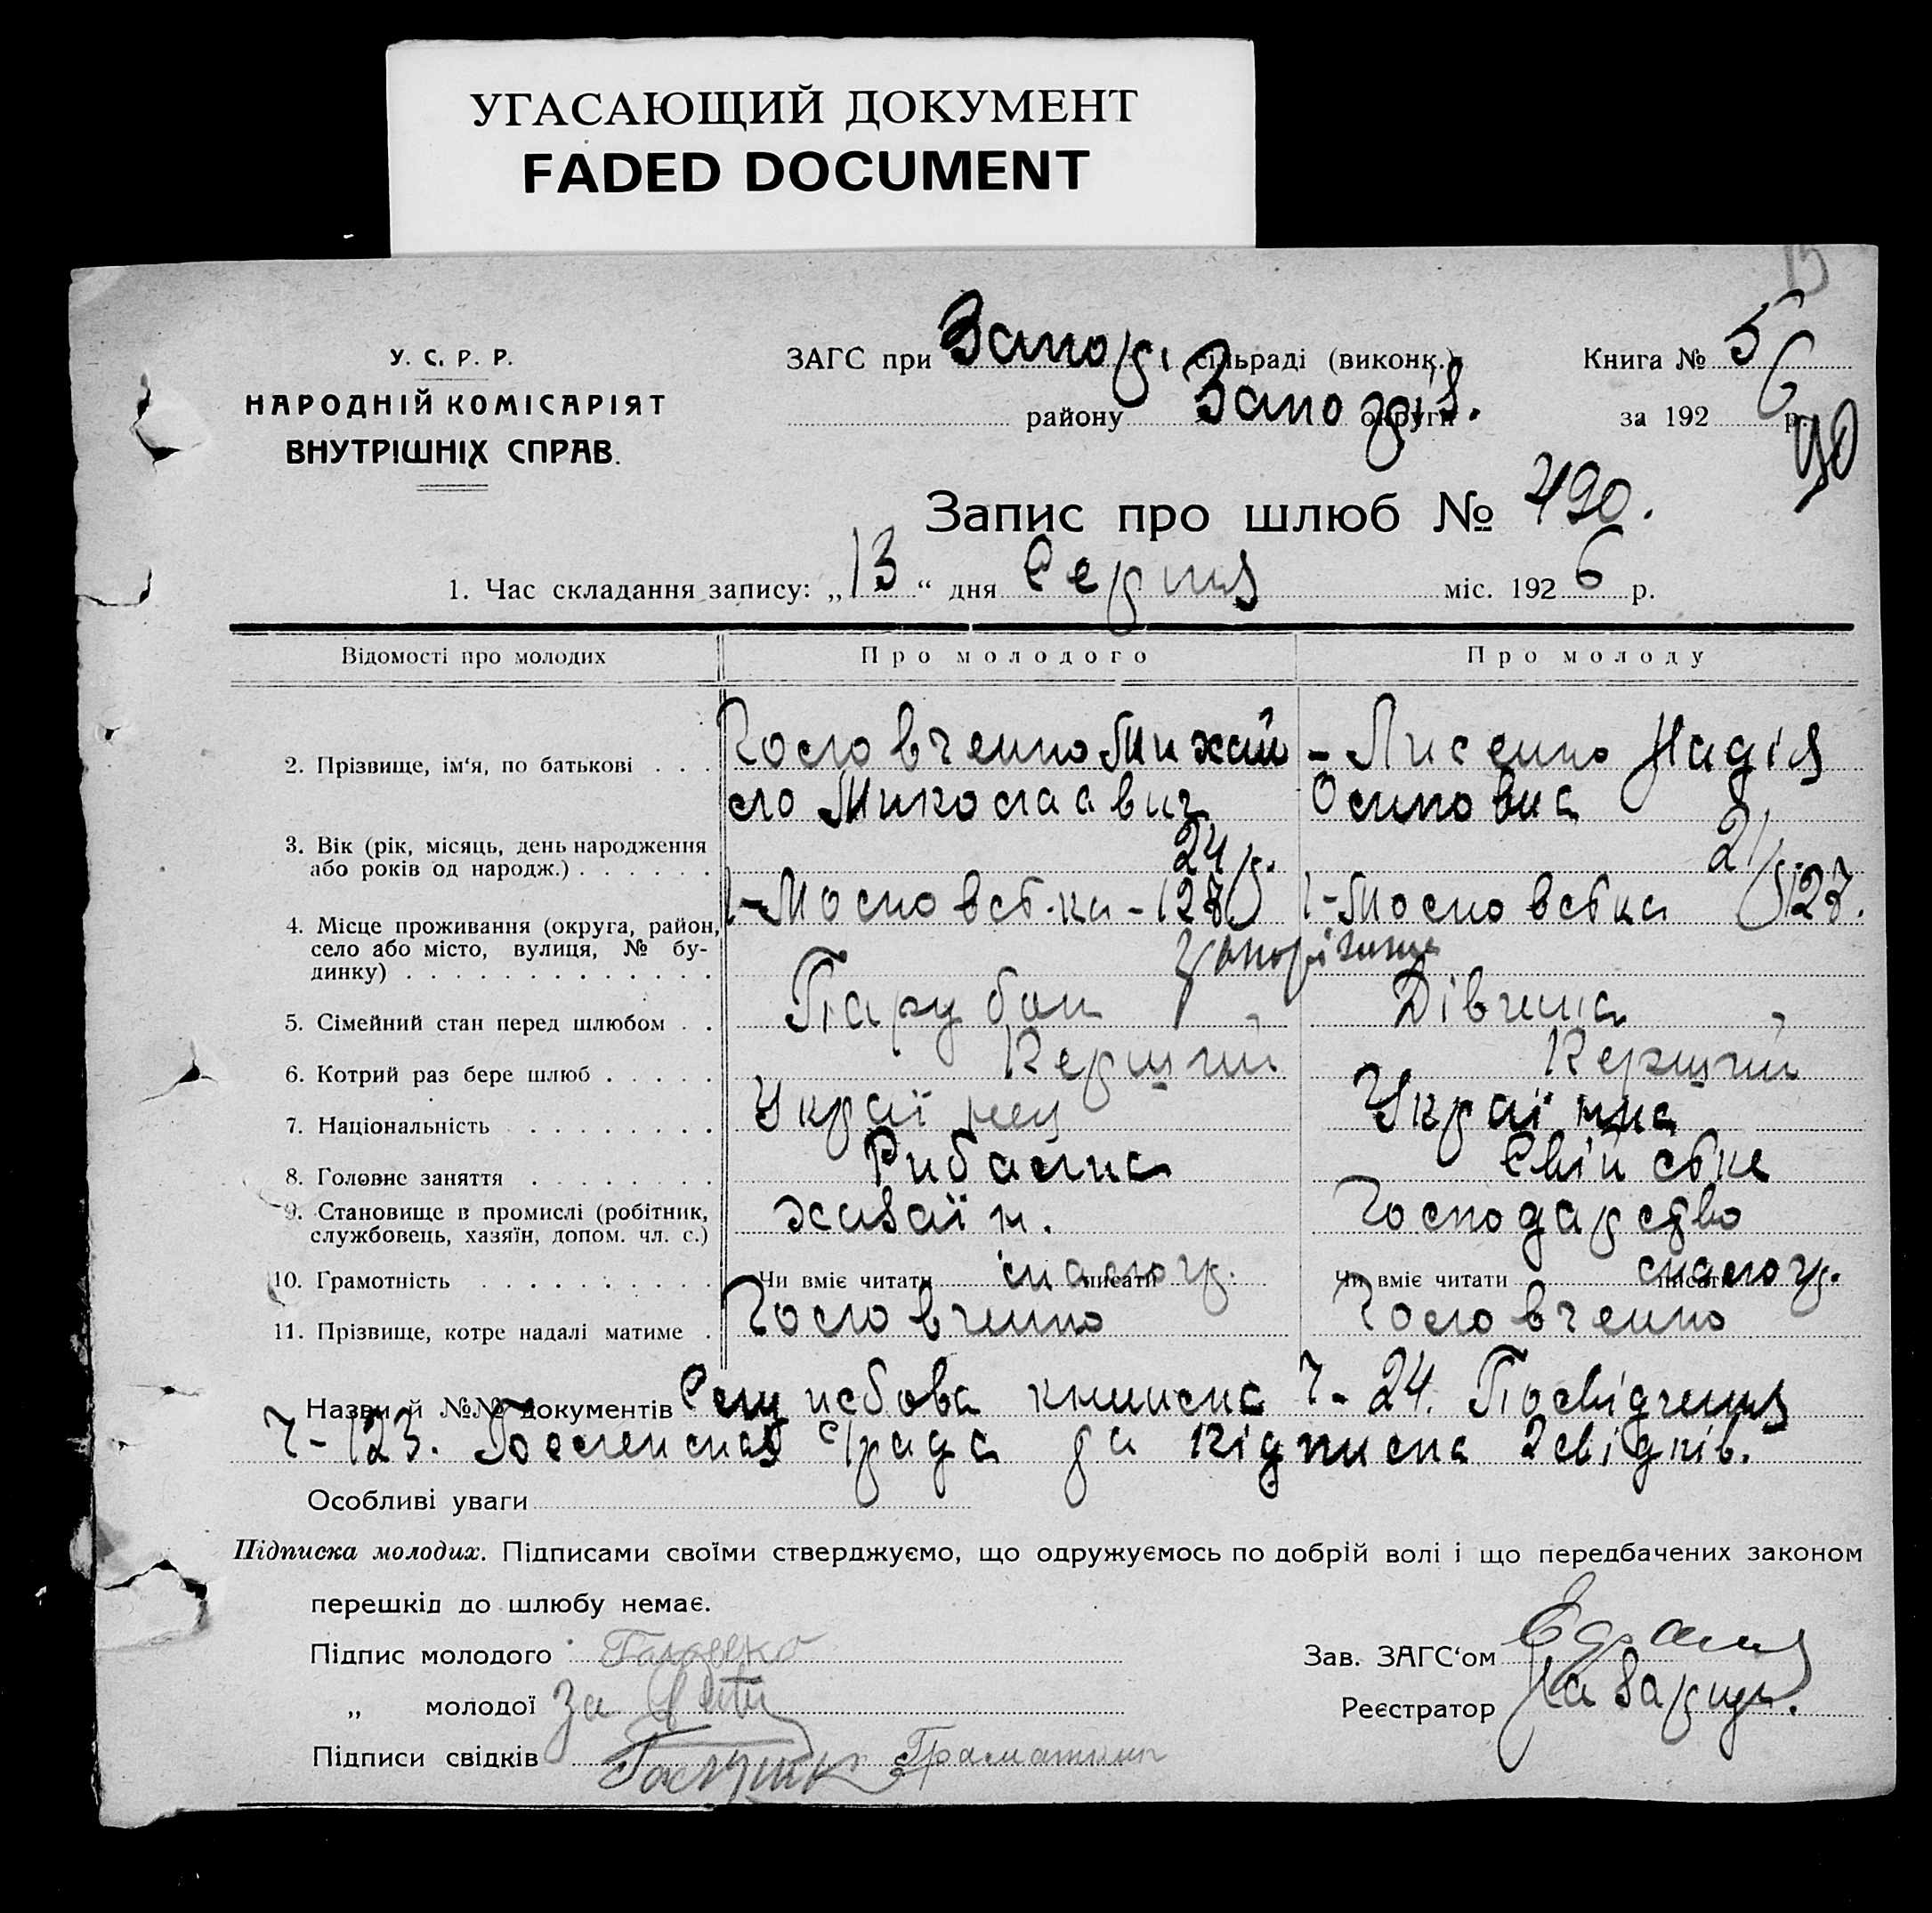 УГАСАЮЩИЙ ДОКУМЕНТ
FADED DOCUMENT
15
У. С. Р. Р.
НАРОДНІЙ КОМІСАРІЯТ
ВНУТРІШНІХ СПРАВ.
ЗАГС при Запор. сільраді (виконк.)
району Запоріз. округи
Книга № 5
за 1926 р.
90
Запис про шлюб № 490.
1. Час складання запису: „13“ дня Серпня міс. 1926 р.
Відомості про молодих
Про молодого
Про молоду
2. Прізвище, ім‘я, по батькові . . .
Головченко Михай
ло Миколаавич
- Лисенко Надія
Осиповна
3. Вік (рік, місяць, день народження
або років од народж.) . . . . . .
24 р.
21 р.
4. Місце проживання (округа, район,
село або місто, вулиця, № бу-
динку) . . . . . . . . . . . . .
1-Московська-128
1-Московська 128.
Запоріжжя
5. Сімейний стан перед шлюбом . .
Парубок
Дівчина
6. Котрий раз бере шлюб . . . . .
Перший
Перший
7. Національність . . . . . . . .
Українец
Українка
8. Головне заняття . . . . . . . .
Рибалка
Свійське
9. Становище в промислі (робітник,
службовець, хазяїн, допом. чл. с.)
хазаїн.
Господарство
10. Грамотність . . . . . . . . . .
Чи вміє читати писати малогр.
Чи вміє читати писати малогр.
11. Прізвище, котре надалі матиме .
Головченко
Головченко
Назви й №№ документів книжка Ч- 24. Посвідчення
Ч-123. с/рада та підписка 2 свідків.
Особливі уваги
Підписка молодих. Підписами своїми стверджуємо, що одружуємось по добрій волі і що передбачених законом
перешкід до шлюбу немає.
Підпис молодого
„ молодої За
Підписи свідків
Зав. ЗАГС‘ом
Реєстратор